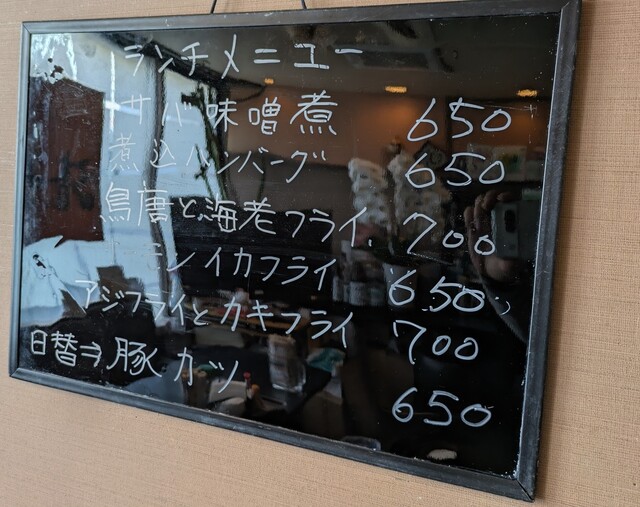 ランチメニュー
サバ味噌煮 650
煮込ハンバーグ 650
鳥唐と海老フライ 700
モンイカフライ 650
アジフライとカキフライ 700
日替→豚カツ 650